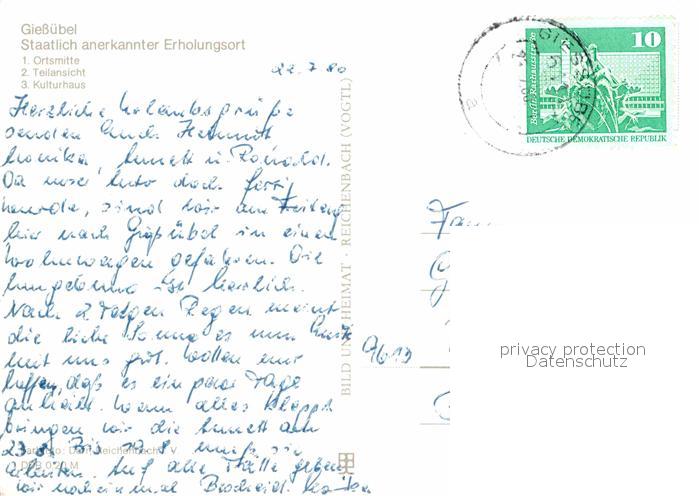 Gießübel
Staatlich anerkannter Erholungsort
1. Ortsmitte
2. Teilansicht
3. Kulturhaus
22.7.80
Herzliche Urlaubsgrüße
senden Euch Helmut
Monika Annett u. Ronald.
Da unser Auto doch fertig
wurde, sind wir am Freitag
hier nach Gießübel in einen
Wohnwagen gefahren. Die
Umgebung ist herrlich.
Nach 2 Tagen Regen meint
die liebe Sonne es nun heute
mit uns gut. Wollen nur
hoffen, daß es ein paar Tage
anhält. Wenn alles klappt
bringen wir die Annett am
23. Bis muß sie
arbeiten. Auf alle Fälle geben
wir noch einmal Bescheid.
BILD UND HEIMAT · REICHENBACH (VOGTL)
10
Berlin, Rathausstraße
DEUTSCHE DEMOKRATISCHE REPUBLIK
GIESSÜBEL
Fam
9613
privacy protection
Datenschutz